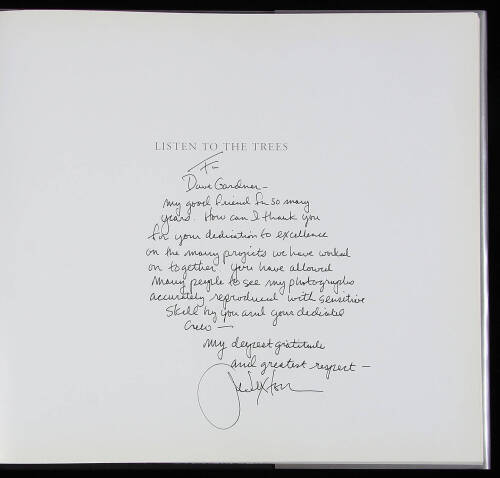 LISTEN TO THE TREES
For
Dave Gardner -
my good friend for so many
years. How can I thank you
for your dedication to excellence
on the many projects we have worked
on together. You have allowed
many people to see my photographs
accurately reproduced with sensitive
skill by you and your dedicated
crew —
my deepest gratitude
and greatest respect —
John Sexton